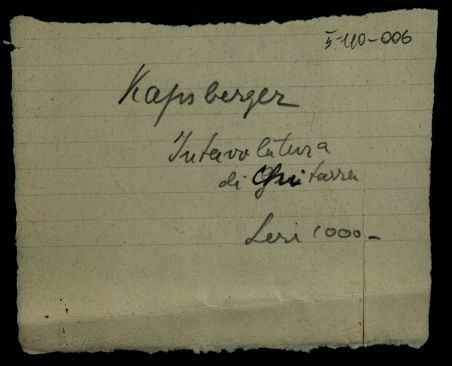 5-110-006
Kapsberger
Intavolatura
di Chitarra
Leri 1000-